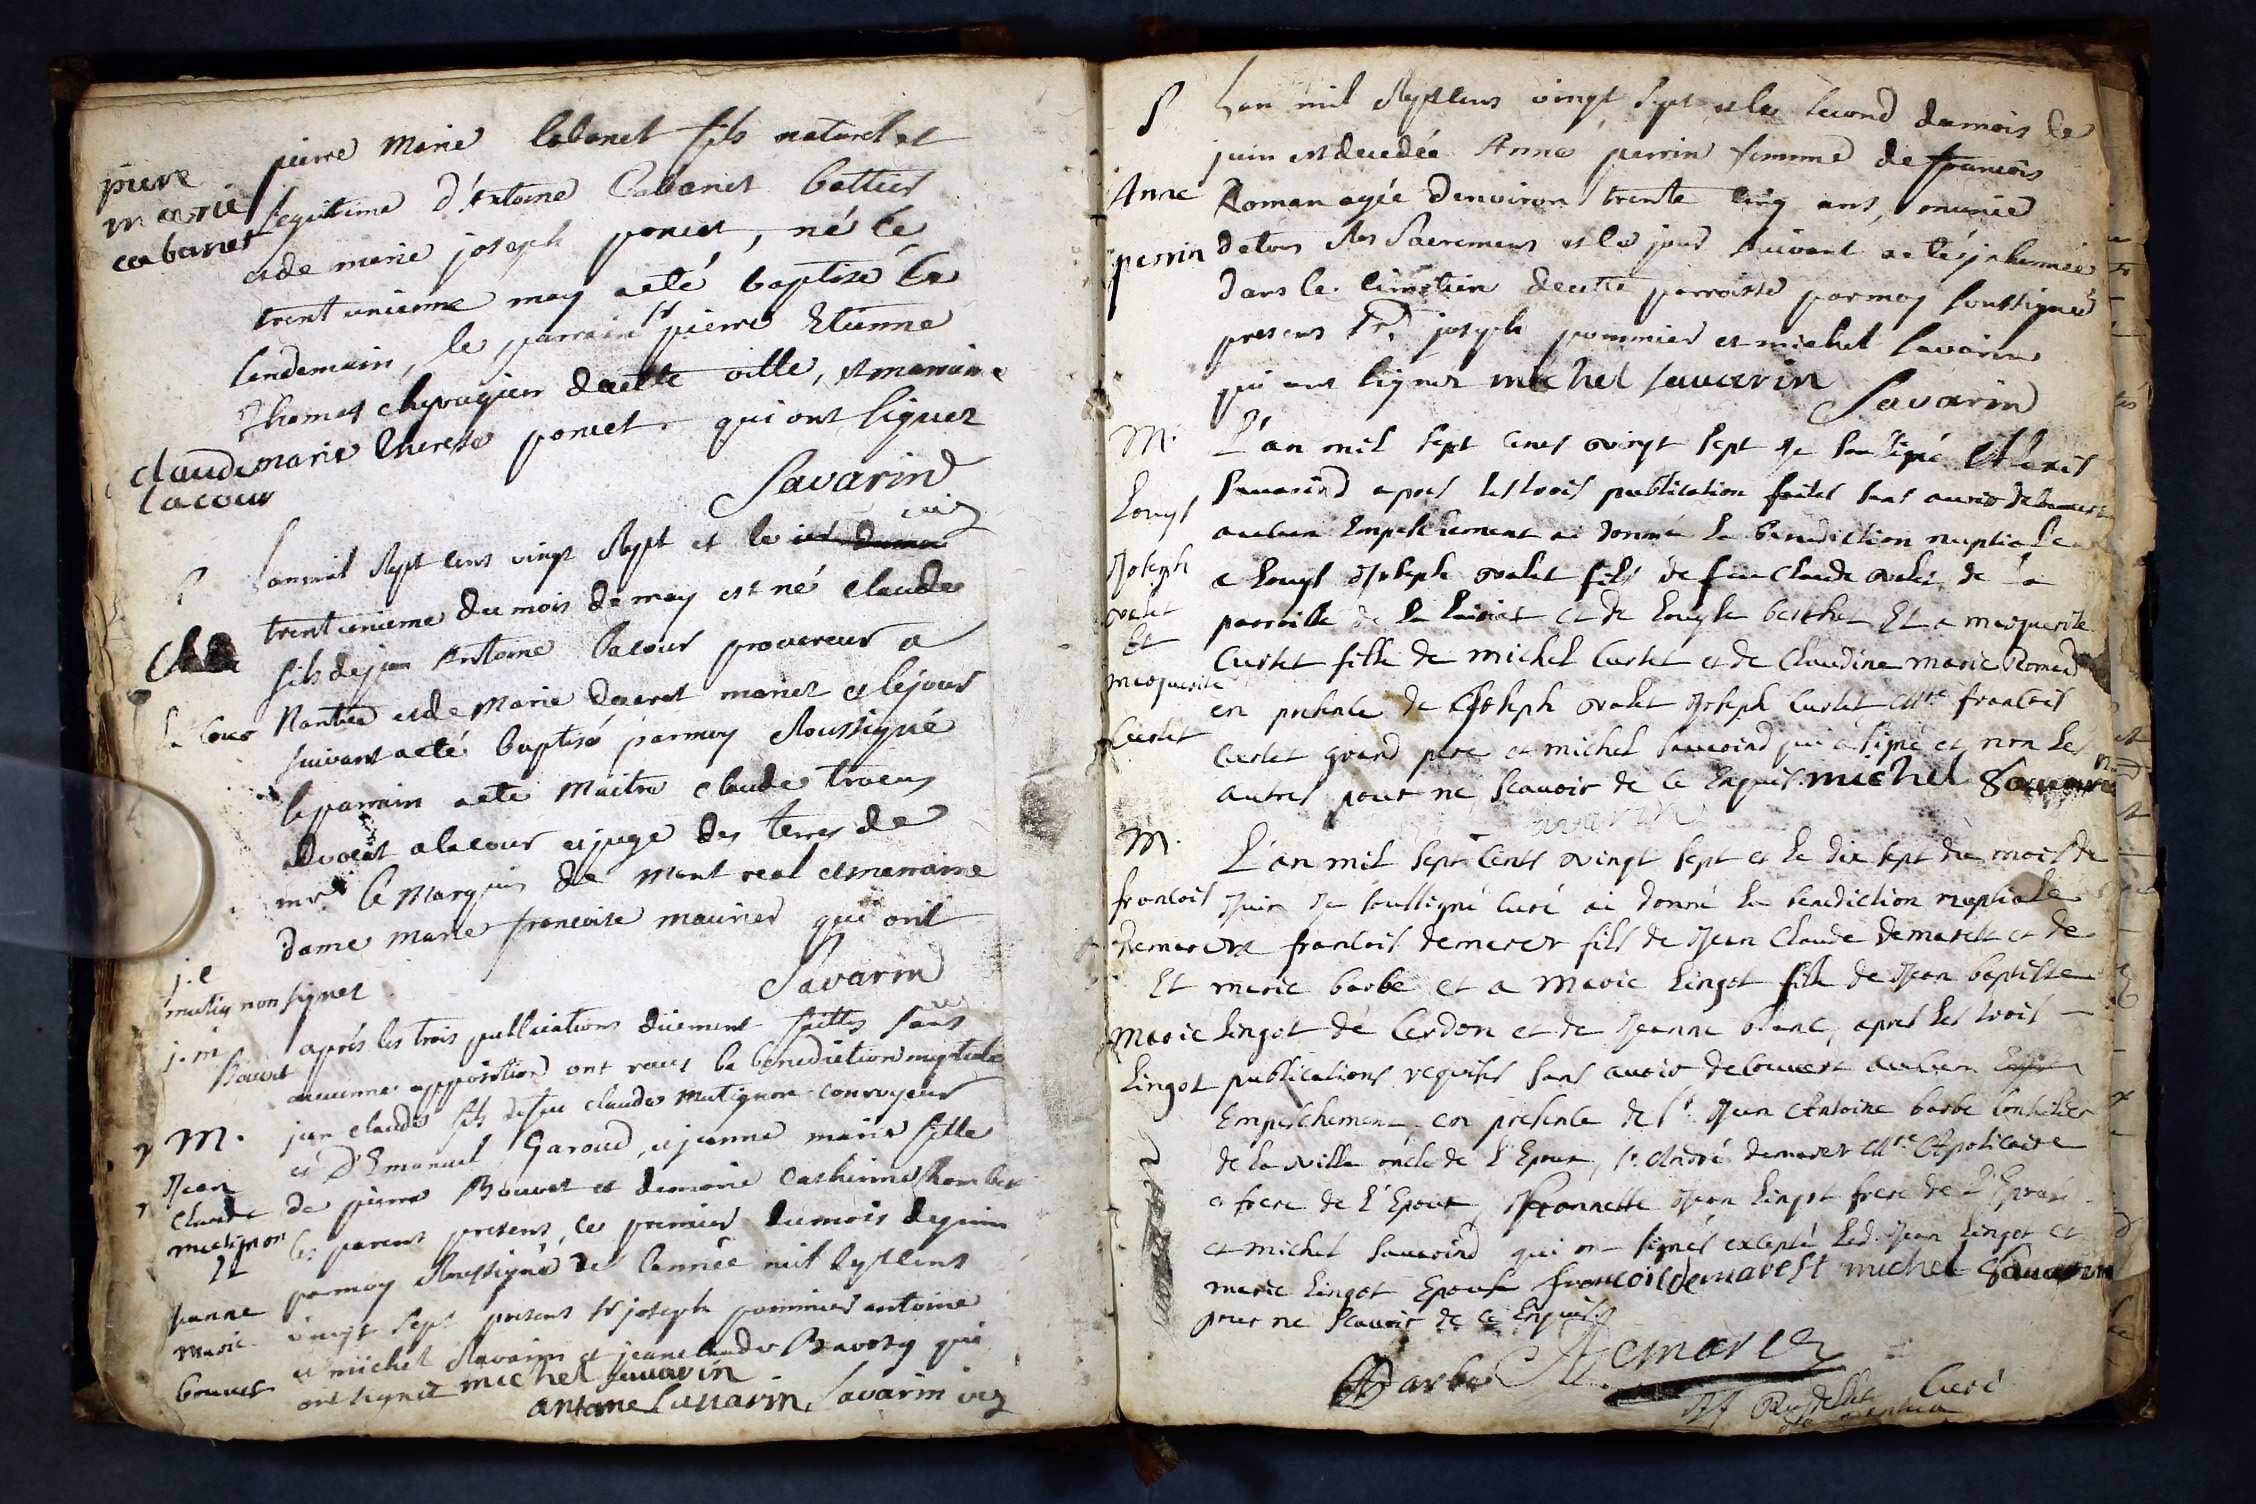 pierre Marie Cabanet fils naturel et
pierre
marie
cabanet
legitime d'Antoine Cabanet battier
et de marie joseph poncet, né le
trent unieme may a eté baptisé le
lendemain, le parrain sr pierre Etienne
Thomas chyrugien de cette ville, et marraine
claude marie therese poncet qui ont signez
lacour
Savarin
vic
L'an mil sept cens vingt sept et le
trent unieme du mois de may est né claude
fils de jean Antoine Lacour procureur a
la Cour Nantua et de Marie ducret mariez et le jour
suivant a eté baptisé par moy soussigné
le parrain a eté Maitre claude
advocat a la cour et juge des terres de
mr le Marquis de Mont real et marraine
dame marie francoise maurier qui ont
non signez
Savarin
j. c
j. m
Bouvet aprés les trois publications düement faittes sans
aucunne opposition ont receu la benediction nuptiale
M. jean claude fils de feu claude Matignon conroyeur
et D'Emanuel Garoud, et jeanne marie fille
Jean
Claude de pierre Bouvet et de marie Catherine
Matignon les parens presens, ce premier du mois de juin
Et
par moy soussigné de l'année mil sept cens
Jeanne
Marie
bouvet
vingt sept presens sr joseph pommier antoine
et michel Savarin et jean claude qui
ont signez michel savarin
antoine Savarin, Savarin vic
S L'an mil sept cens vingt sept et le second du mois de
juin est decedée Anne perrin femme de francois
Anne
perrin
Roman agée d'environ trente cinq ans, munie
de tous les Sacremens et le jour suivant a eté inhumée
dans le cimetiere de cette parroisse par moy soussigné
presens Sr. joseph pommier et michel Savarin
qui ont signez michel savarin
Savarin
M. L'an mil sept cents vingt sept Je soussigné Alexis
Louys
Joseph
valet
Et
marguerite
Curtet
Savarind apres les trois publication faites sans avoir decouvert
aucun Empeschement ai donné la benediction nuptiale
a Louys Joseph valet fils de feu Claude valet de la
parroisse de et de Louyse berthet Et a marguerite
Curtet fille de michel Curtet et de Claudine marie Romand
en presence de Joseph valet Joseph Curtet Mtre francois
Curtet grand pere et michel Savarind qui a signé et non les
autres pour ne scavoir de ce Enquis michel Savarin
M. L'an mil sept Cents vingt sept et le dix sept du mois de
francois Juin Je soussigné Curé ai donné la benediction nuptiale
demarest a francois demarest fils de Jean Claude demarest et de
Et marie barbe et a Marie Lingot fille de Jean baptiste
Marie Lingot de Cerdon et de Jeanne blanc, apres les trois
Lingot publications requises sans avoir decouvert aucun
Empeschement en presence de Sr. Jean Antoine barbe Conseiller
de la ville oncle de l'Epoux, Sr. André demarest Mtre Apoticaire
et frere de l'Epoux, Jean Lingot frere de l'Epouse
et michel Savarind qui ont signés excepté led. Jean Lingot et
marie Lingot Epouse francois demarest michel Savarin
pour ne scavoir de ce Enquis
Barbe A Demarest
Curé